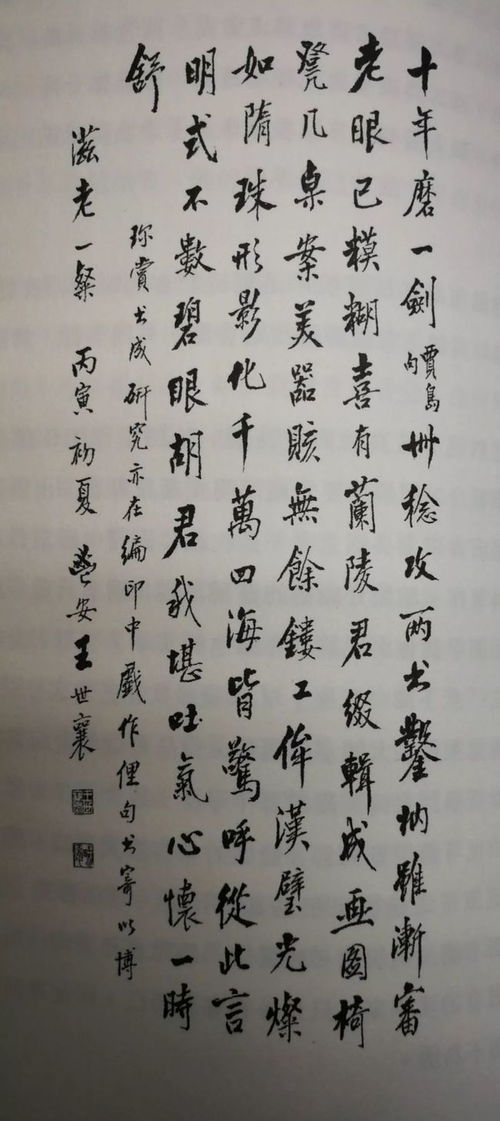 十年磨一劍賈島句卅稔攻兩书鑿枘雖漸審
老眼已糢糊喜有蘭陵君綴輯成画圖椅
凳几桌案美器賅無餘鏤工侔漢璧光燦
如隋珠形影化千萬四海皆驚呼從此言
明式不數碧眼胡君我堪吐氣心懷一時
舒
珎賞书成研究亦在編印中戲作俚句书寄以博
滋老一粲 丙寅初夏 鬯安王世襄